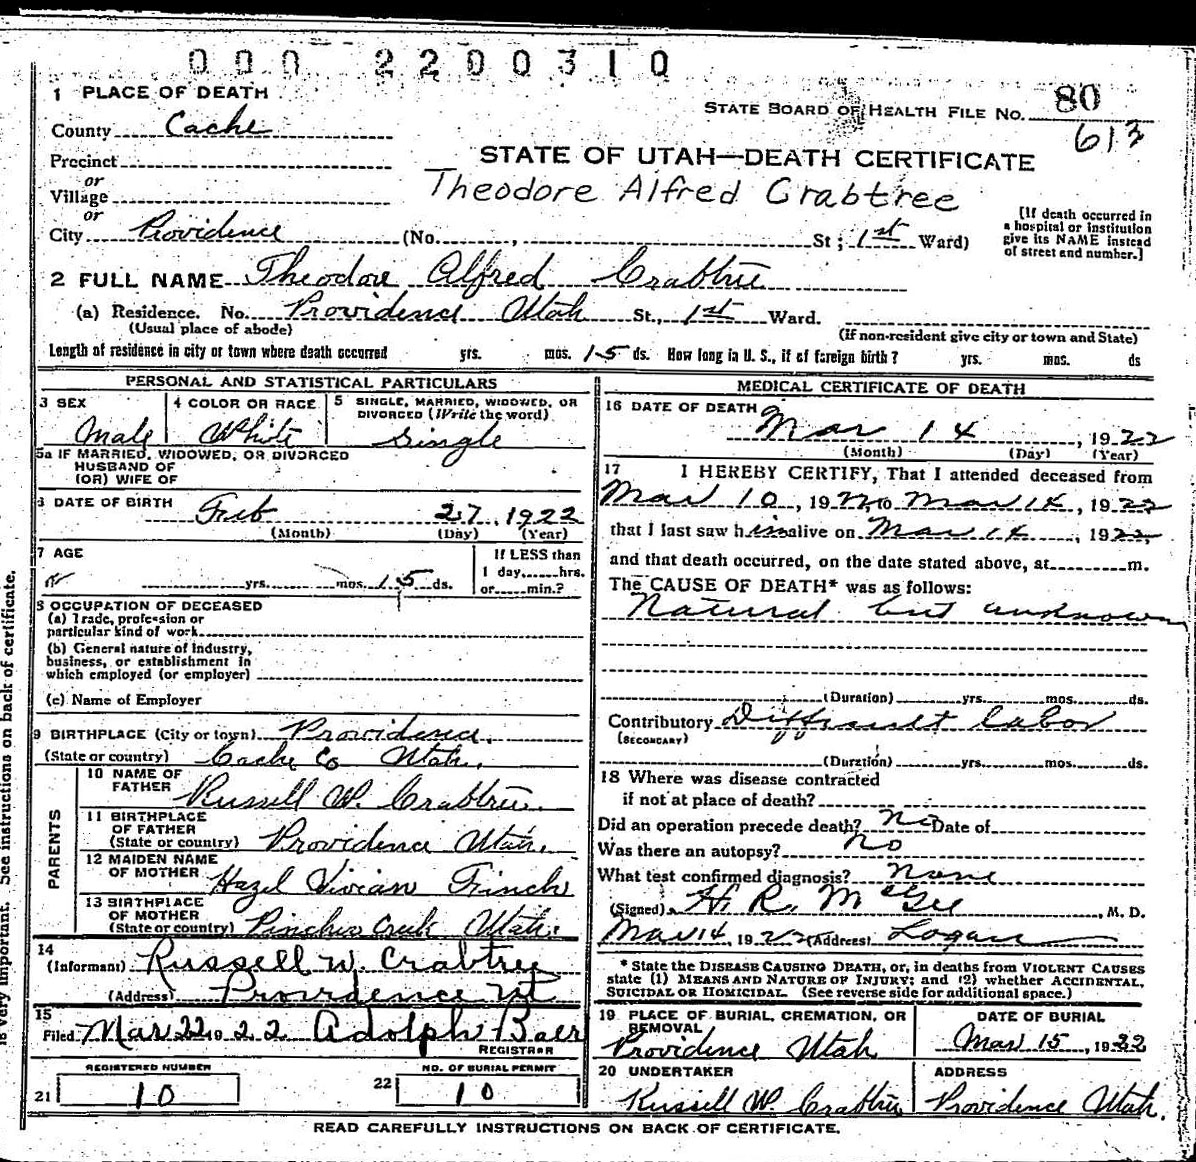 000 2200310
1 PLACE OF DEATH
STATE BOARD OF HEALTH FILE NO. 80
613
County Cache
Precinct
or
Village
or
STATE OF UTAH—DEATH CERTIFICATE
Theodore Alfred Crabtree
City Providence (No. , St ; 1st Ward)
[If death occurred in
a hospital or institution
give its NAME instead
of street and number.]
2 FULL NAME Theodore Alfred Crabtree
(a) Residence. No. Providence Utah St., 1st Ward.
(Usual place of abode)
(If non-resident give city or town and State)
Length of residence in city or town where death occurred yrs. mos. 15 ds. How long in U. S., if of foreign birth? yrs. mos. ds
PERSONAL AND STATISTICAL PARTICULARS
3 SEX
Male
4 COLOR OR RACE
White
5 SINGLE, MARRIED, WIDOWED, OR
DIVORCED (Write the word)
Single
5a IF MARRIED, WIDOWED, OR DIVORCED
HUSBAND OF
(OR) WIFE OF
6 DATE OF BIRTH Feb 27, 1922
(Month) (Day) (Year)
7 AGE
yrs. mos. 15 ds.
If LESS than
1 day, hrs.
or min.?
8 OCCUPATION OF DECEASED
(a) Trade, profession or
particular kind of work
(b) General nature of industry,
business, or establishment in
which employed (or employer)
(c) Name of Employer
9 BIRTHPLACE (City or town) Providence.
(State or country) Cache Co Utah.
PARENTS
10 NAME OF
FATHER Russell W. Crabtree
11 BIRTHPLACE
OF FATHER
(State or country) Providence Utah.
12 MAIDEN NAME
OF MOTHER Hazel Vivian Finch
13 BIRTHPLACE
OF MOTHER
(State or country) Creek Utah.
14
(Informant) Russell W. Crabtree
(Address) Providence Ut
15
Filed Mar 22 1922 Adolph Baer
REGISTRAR
REGISTERED NUMBER
21 10
NO. OF BURIAL PERMIT
22 10
MEDICAL CERTIFICATE OF DEATH
16 DATE OF DEATH
Mar 14, 1922
(Month) (Day) (Year)
17 I HEREBY CERTIFY, That I attended deceased from
Mar 10, 1922, to Mar 14, 1922
that I last saw him alive on Mar 14, 1922,
and that death occurred, on the date stated above, at m.
The CAUSE OF DEATH* was as follows:
Natural but unknown
(Duration) yrs. mos. ds.
Contributory Diffrault labor
(SECONDARY)
(Duration) yrs. mos. ds.
18 Where was disease contracted
if not at place of death?
Did an operation precede death? No Date of
Was there an autopsy? No
What test confirmed diagnosis? None
(Signed) H. R. McGee, M. D.
Mar 14, 1922 (Address) Logan
* State the DISEASE CAUSING DEATH, or, in deaths from VIOLENT CAUSES
state (1) MEANS AND NATURE OF INJURY; and (2) whether ACCIDENTAL,
SUICIDAL OR HOMICIDAL. (See reverse side for additional space.)
19 PLACE OF BURIAL, CREMATION, OR
REMOVAL
Providence Utah
DATE OF BURIAL
Mar 15, 1922
20 UNDERTAKER
Russell W. Crabtree
ADDRESS
Providence Utah.
READ CAREFULLY INSTRUCTIONS ON BACK OF CERTIFICATE.
is very important. See instructions on back of certificate.